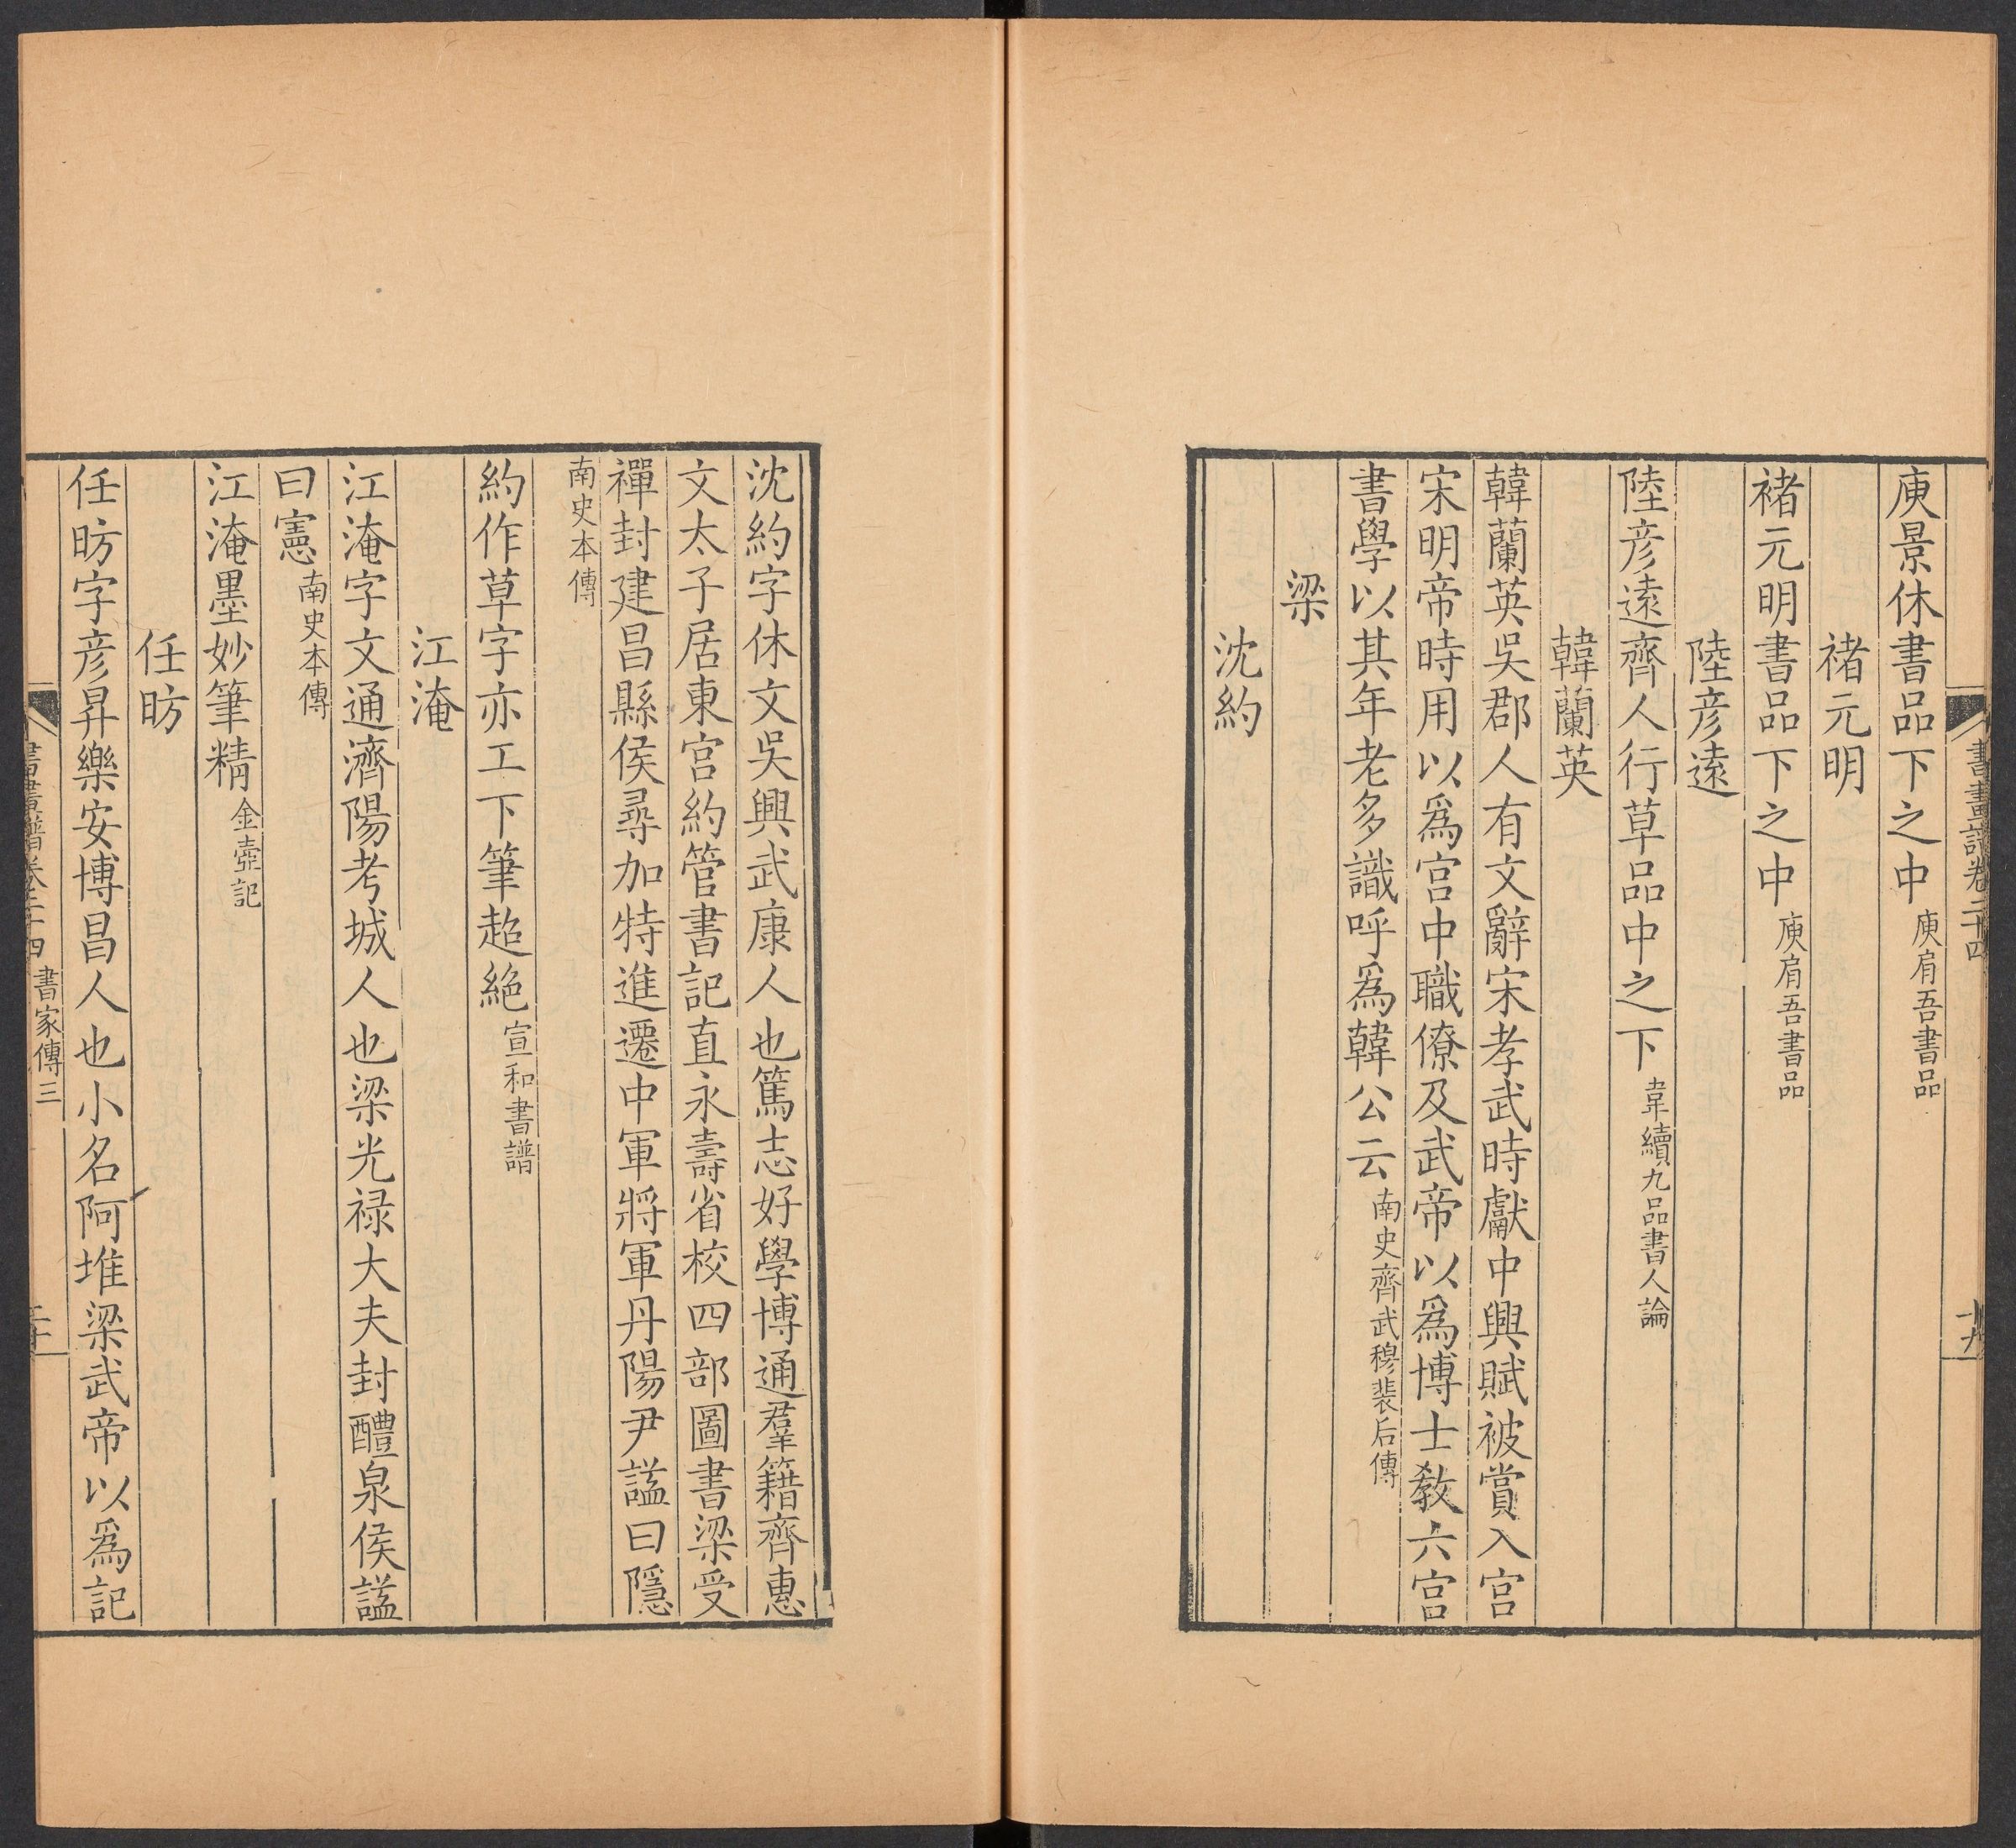 書畫譜卷二十四
十九
庾景休書品下之中庾肩吾書品
褚元明
褚元明書品下之中庾肩吾書品
陸彦遠
陸彦遠齊人行草品中之下韋續九品書人論
韓蘭英
韓蘭英吳郡人有文辭宋孝武時獻中興賦被賞入宮
宋明帝時用以爲宮中職僚及武帝以爲博士敎六宮
書學以其年老多識呼爲韓公云南史齊武穆裴后傳
梁
沈約
沈約字休文吳興武康人也篤志好學博通羣籍齊惠
文太子居東宮約管書記直永壽省校四部圖書梁受
禪封建昌縣侯尋加特進遷中軍將軍丹陽尹諡曰隱
南史本傳
約作草字亦工下筆超絶宣和書譜
江淹
江淹字文通濟陽考城人也梁光禄大夫封醴泉侯諡
曰憲南史本傳
江淹墨妙筆精金壺記
任昉
任昉字彦昇樂安博昌人也小名阿堆梁武帝以爲記
書畫譜卷二十四 書家傳三
二十